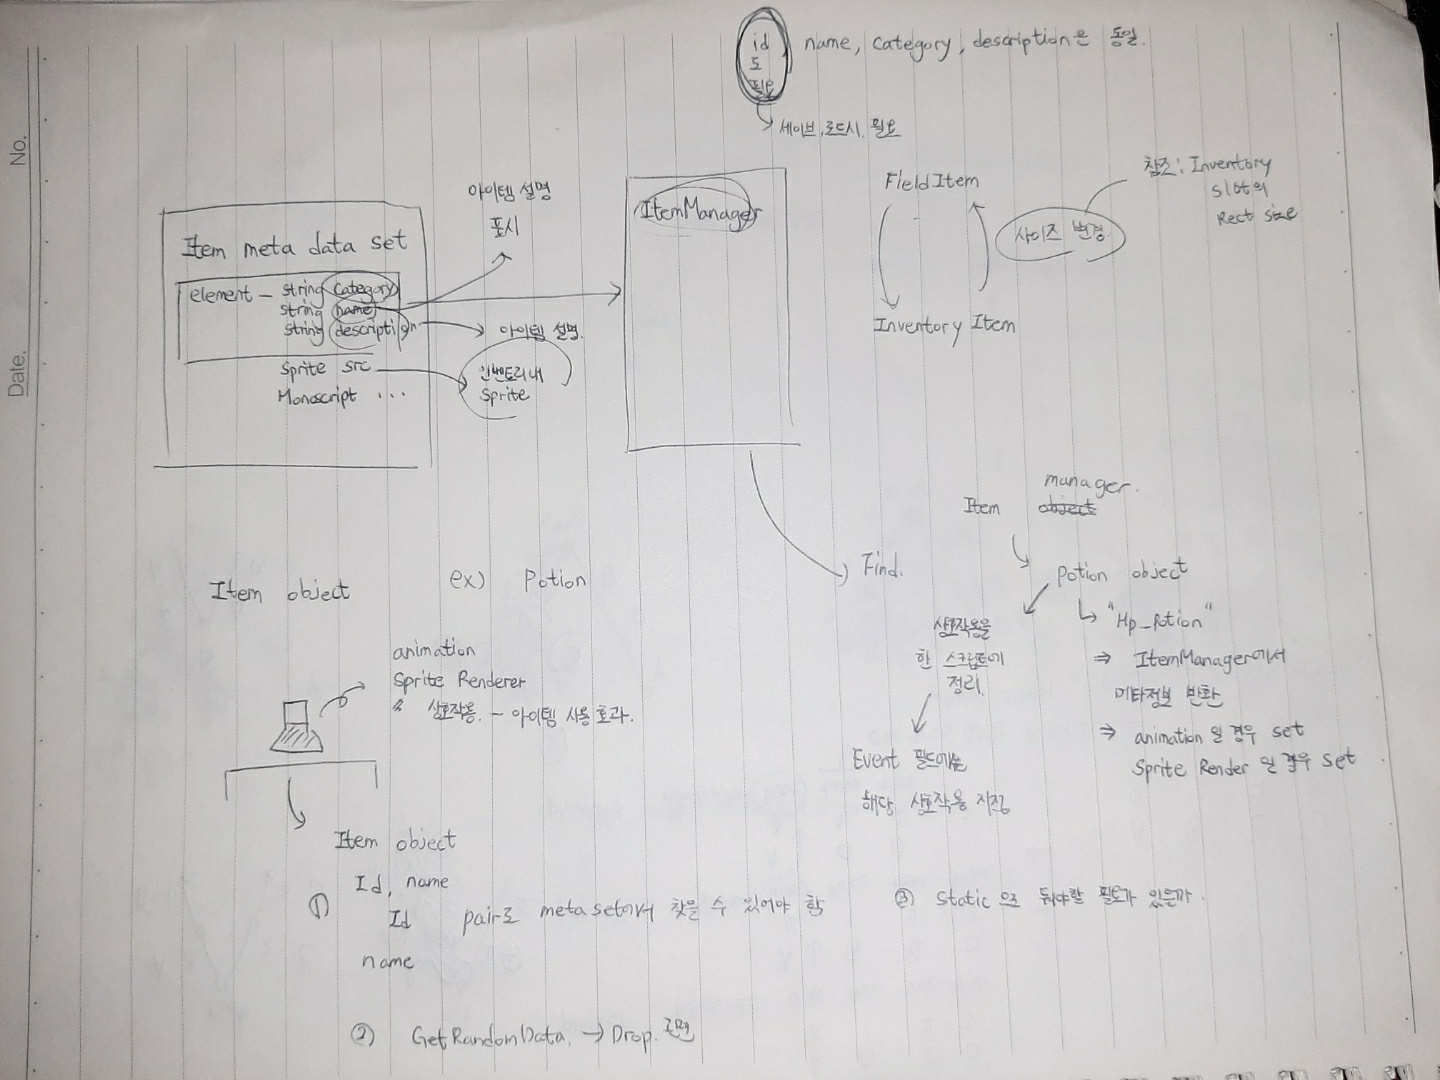 No.
Date.
id
도
필요
name, category, description은 동일.
세이브, 로드시 필요
Item meta data set
element - string category
string name
string description
Sprite src
Monoscript ...
아이템 설명
표시
아이템 설명.
인벤토리내
Sprite
ItemManager
FieldItem
Inventory Item
사이즈 변경.
참조: Inventory
slot의
Rect size
Find.
manager.
Item object
Potion object
"Hp_Potion"
⇒ ItemManager에서
메타정보 반환
⇒ animation 일 경우 set
Sprite Render 일 경우 set
상호작용을
한 스크립트에
정리.
Event 필드에는
해당 상호작용 지정
Item object
ex) Potion
animation
Sprite Renderer
상호작용. - 아이템 사용 효과.
Item object
① Id, name
Id pair로 meta set에서 찾을 수 있어야 함
name
② GetRandomData. → Drop.
③ Static 으로 둬야할 필요가 있는가.